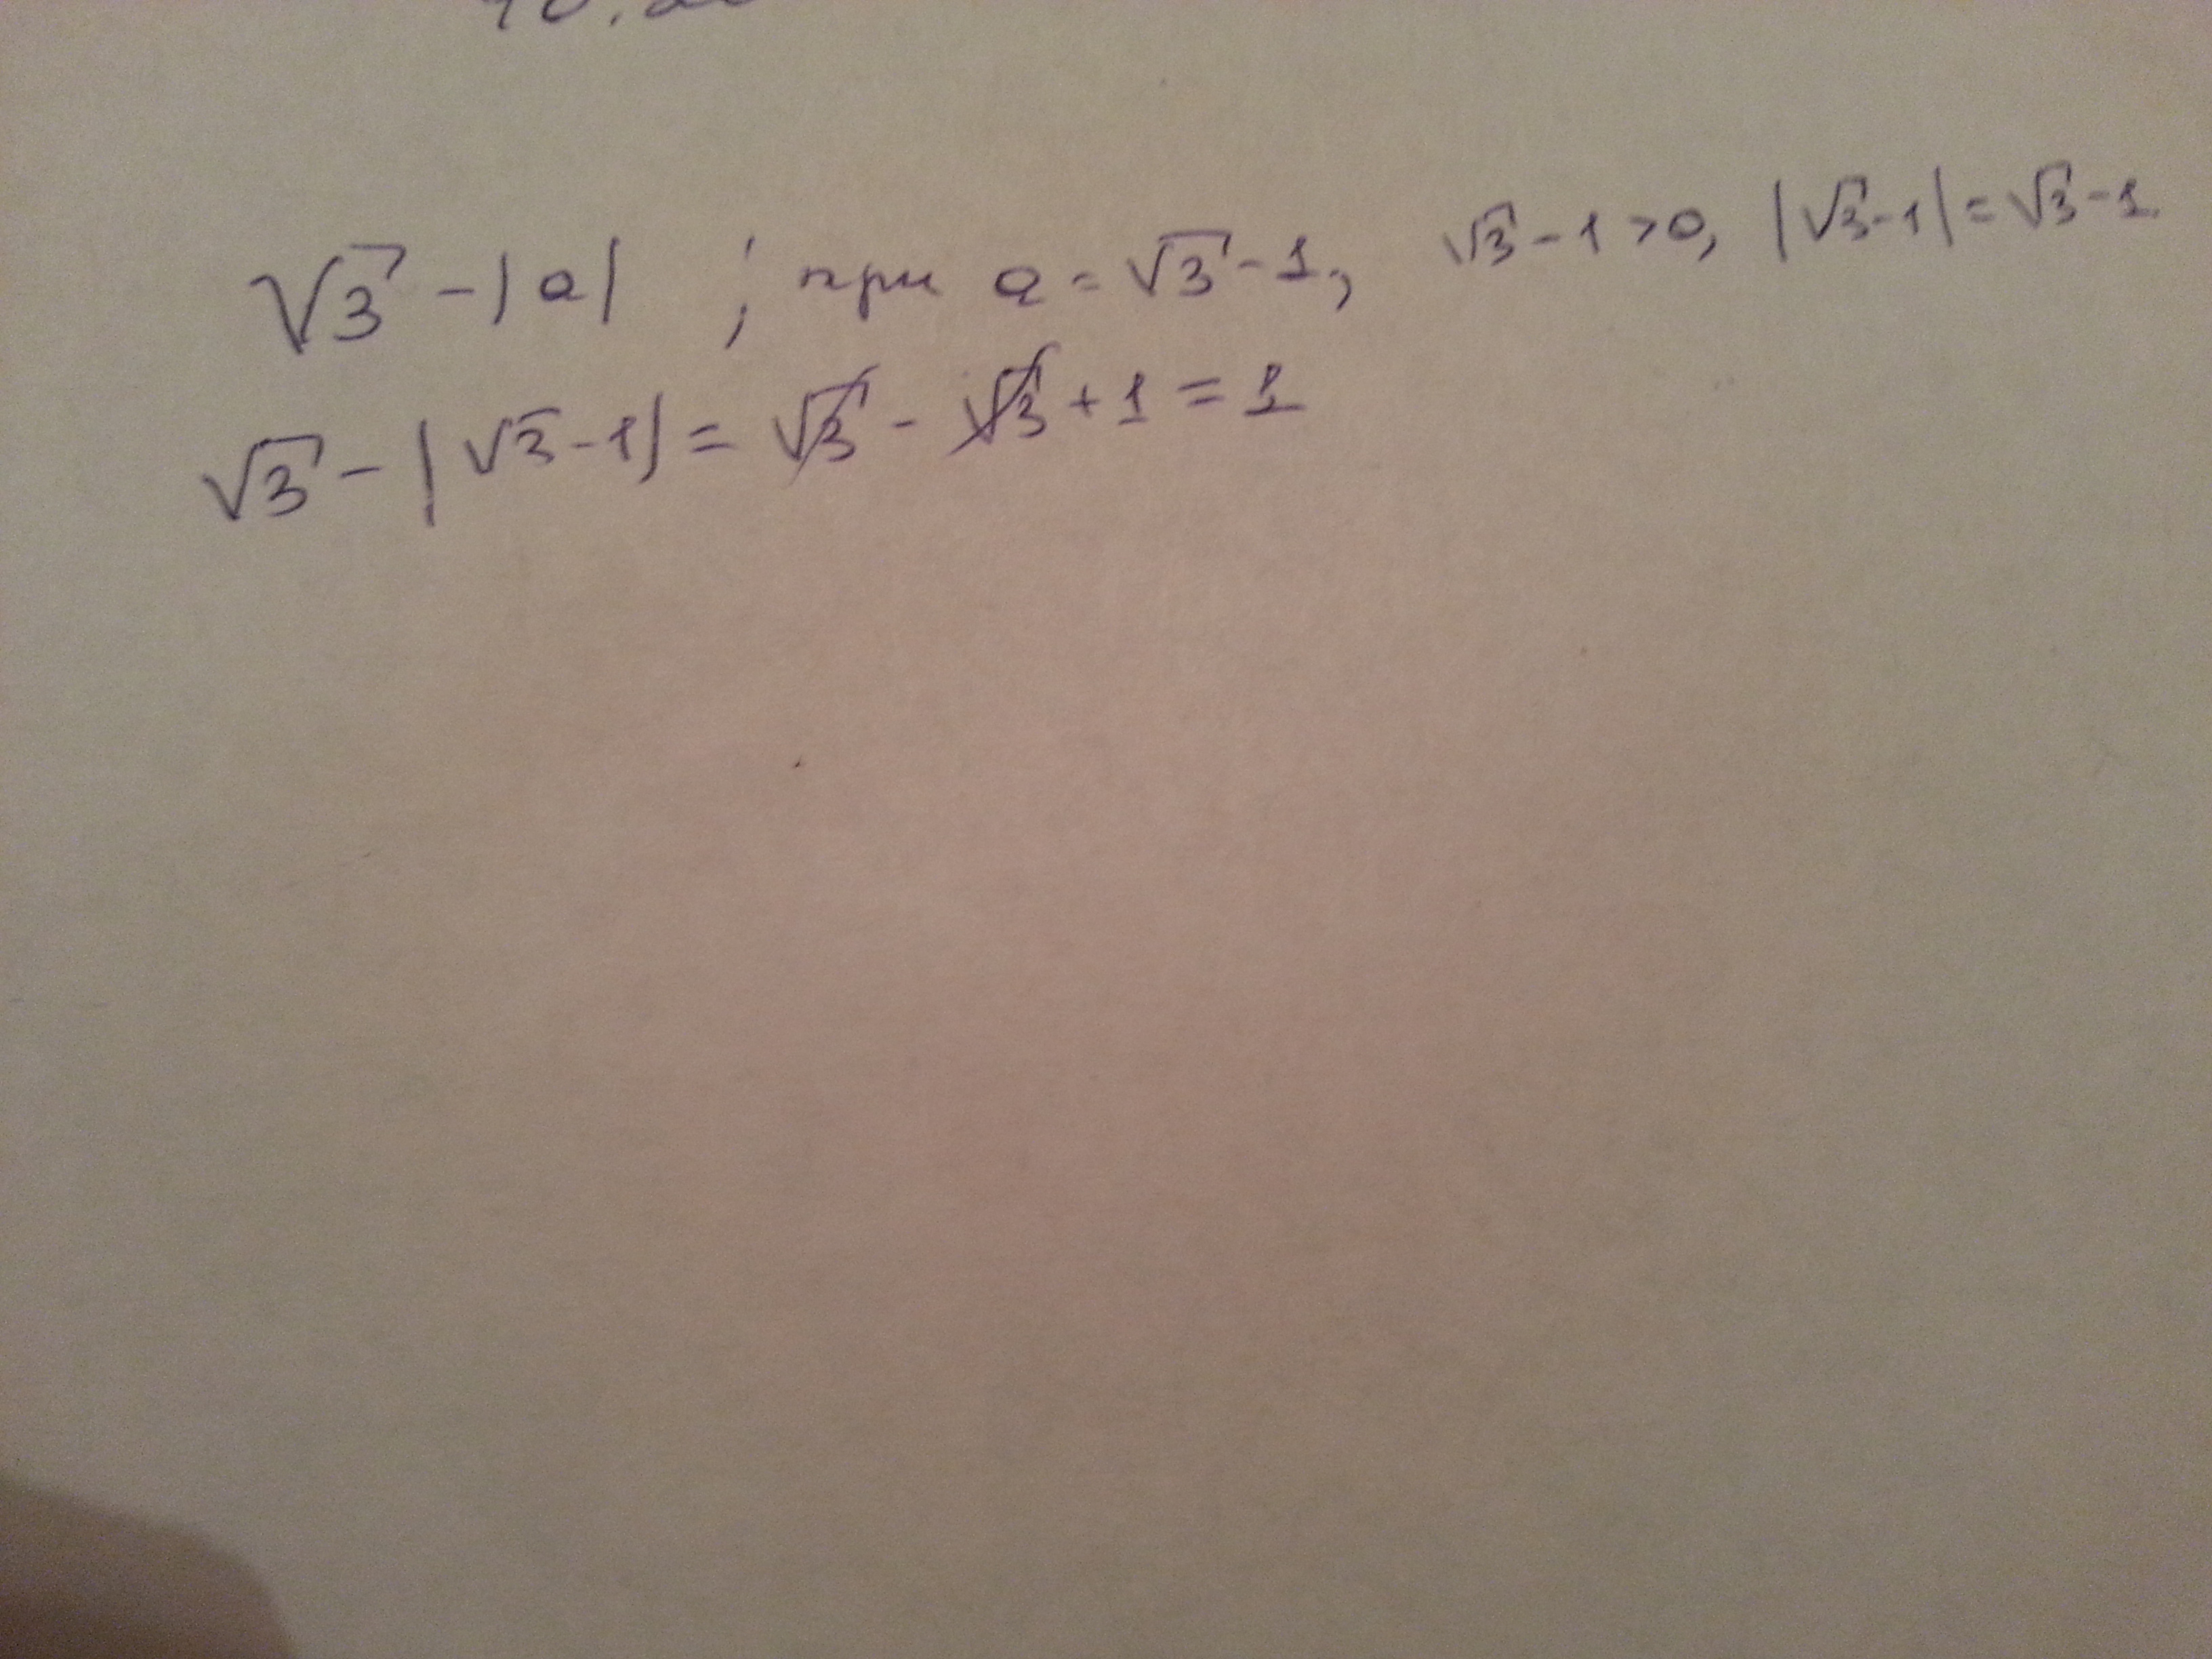 √3 - |a| ; при a = √3 - 1, √3 - 1 > 0, |√3 - 1| = √3 - 1.
√3 - |√3 - 1| = √3 - √3 + 1 = 1